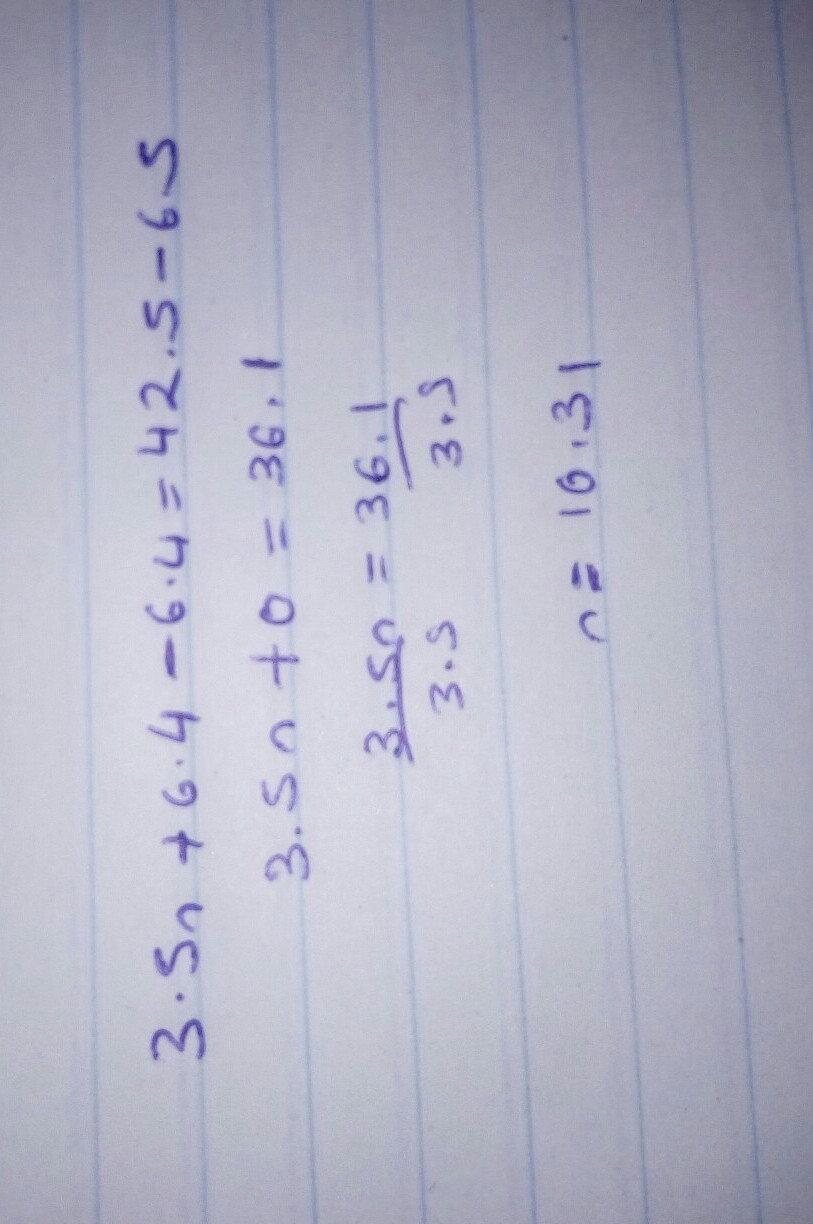 3.5n + 6.4 - 6.4 = 42.5 - 6.5
3.5n + 0 = 36.1
3.5n/3.5 = 36.1/3.5
n = 10.31